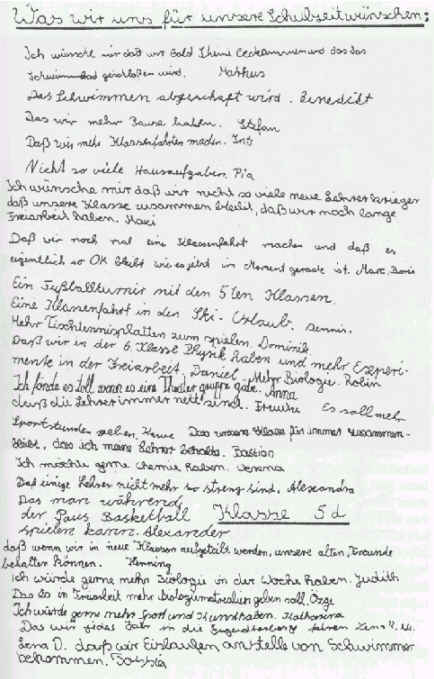 Was wir uns für unsere Schulzeit wünschen:
Ich wünsche mir daß wir bald
Schwimmbad geschloßen wird. Mathus
Das Schwimmen abgeschaft wird. Benedikt
Das wir mehr Pause haben. Stefan
Daß wir mehr Klassenfahrten machen.
Nicht so viele Hausaufgaben. Pia
Ich wünsche mir daß wir nicht so viele neue Lehrer krieger
daß unsere Klasse zusammen bleibt, daß wir noch lange
Freiarbeit haben. Maxi
Daß wir noch mal eine Klassenfahrt machen und daß es
eigentlich so OK bleibt wie es jetzt im Moment gerade ist. Marc, Boris
Ein Fußballturnir mit den 5ten Klassen.
Eine Klassenfahrt in den Ski-Urlaub. Dennis.
Mehr Tischtennisplatten zum spielen. Dominik
Daß wir in der 6. Klasse Physik haben und mehr Experi-
mente in der Freiarbeit. Daniel, Mehr Biologie. Robin
Ich fände es toll wenn es eine Theater gruppe gäbe. Anna
daß die Lehrer immer nett sind. Frauke Es soll mehr
Sportstunden geben, Das unsere Klasse für immer zusammen-
bleibt, das ich meine Lehrer behalte. Bastian
Ich möchte gerne Chemie haben. Verena
Das einige Lehrer nicht mehr so streng sind. Alexandra
Das man während
der Paus Basketball Klasse 5d
spielen kann. Alexander
daß wenn wir in neue Klassen aufgeteilt werden, unsere alten Freunde
behalten können. Henning
Ich würde gerne mehr Biologie in der Woche haben. Judith
Das es in Freiarbeit mehr Biologiematerialien geben soll. Özge
Ich würde gerne mehr Sport und Kunst haben. Katharina
Das wir jedes Jahr in die Jugendherberge fahren
Lena D. daß wir Eislaufen anstelle von Schwimmen
bekommen.